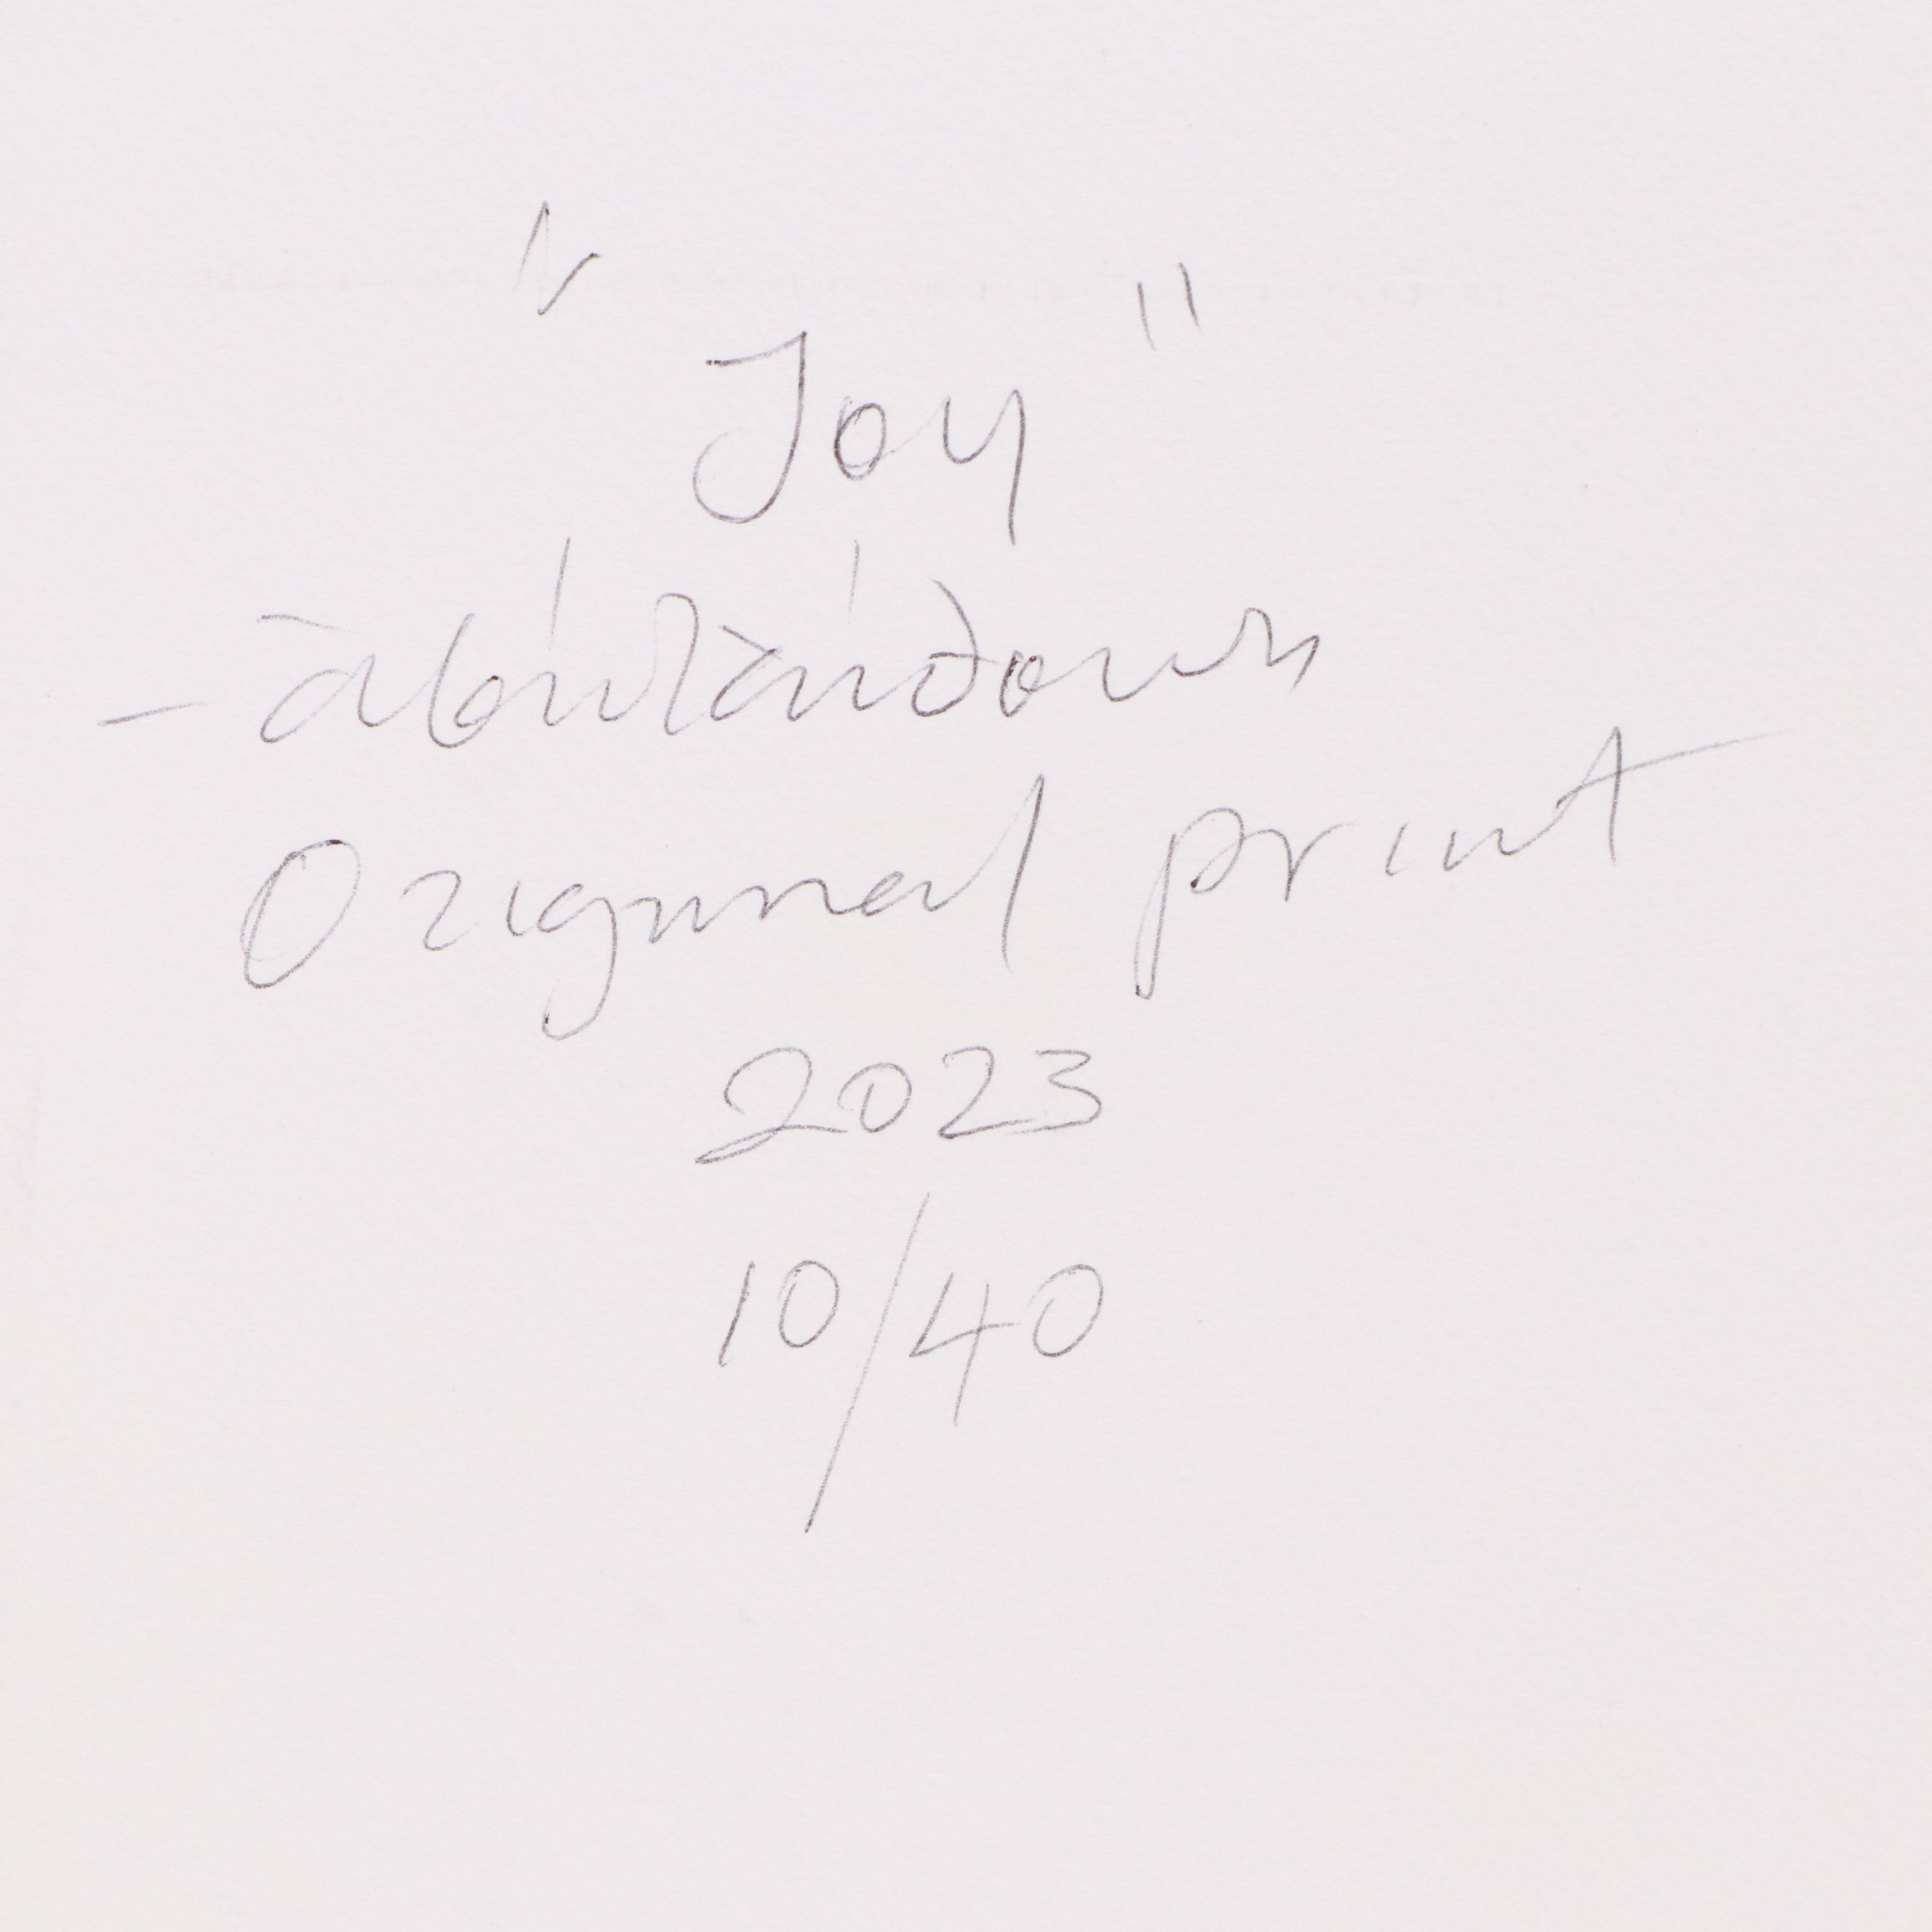 "Joy"
Original print
2023
10/40